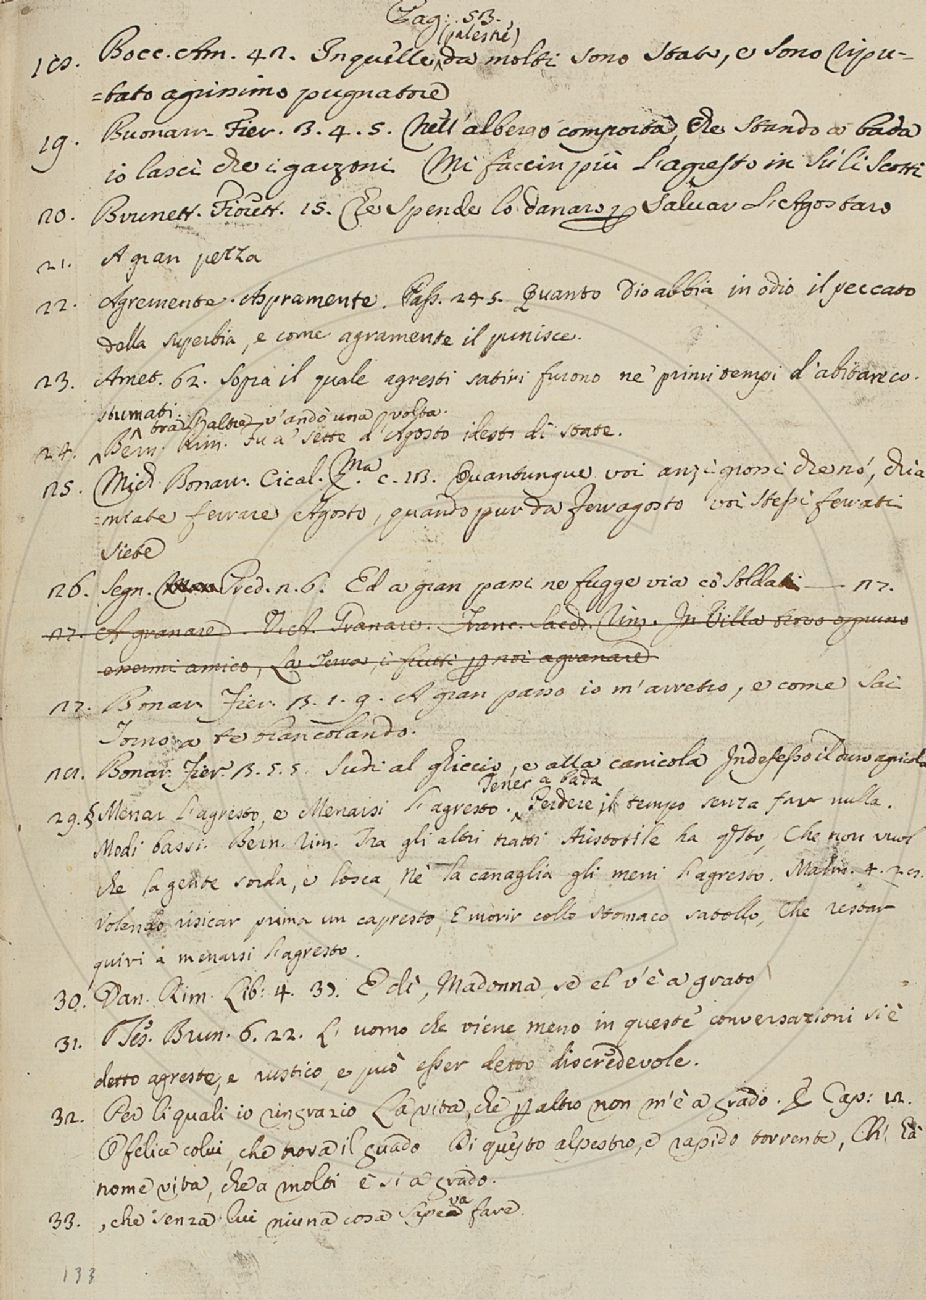 Pag: 53.
(palestre)
18. Bocc. Am. 42. In quelle, da molti sono stato, e sono ripu-
=tato agrissimo pugnatore
19. Buonarr. Fier. 3. 4. 5. Nell'albergo comporta, che stando a bada
io lasci che i garzoni Mi faccin più l'agresto in sù li scotti
20. Brunett. Pataff. 15. Che spende lo danaro p salvar l'Agostaro
21. A gran pezza
22. Agremente. Aspramente. Pass. 245. Quanto Dio abbia in odio il peccato
della superbia, e come agramente il punisce.
23. Amet. 62. Sopra il quale agresti satiri furono ne' primi tempi d'abitare co-
stumati.
tra l'altre v'andò una volta.
24. Bern. Rim. Fu a' sette d'Agosto idest di state.
25. Mich. Bonarr. Cical. Ma. c. 13. Quantunque voi anzi gnorsi che nò, chia
=miate ferrare Agosto, quando pur da ferragosto voi stessi ferrati
siete
26. Segn. Pred. n. 6. Ed a gran passi ne fugge via co' soldati —— 27.
27. A granare. V. A. Granare. Franc. Sacch. Rim. In Villa trovo ognuno
essermi amico, La Terra, i frutti p noi agranare
27. Bonar. Fier. 3. 1. 9. A gran passo io m'arretro, e come sai
Torno a te brancolando.
28. Bonar. Fier. 3. 5. 5. Sudi al ghiaccio, e alla canicola Indefesso il duro agricola
Tener a bada
29. § Menar l'agresto, e Menarsi l'agresto. Perdere il tempo senza far nulla.
Modi bassi. Bern. Rim. Tra gli altri tratti Aristotile ha qsto, Che non vuol
che la gente sorda, e losca, Nè la canaglia gli meni l'agresto. Malm. 4. 28.
Volendo risicar prima un capresto, E morir collo stomaco satollo, Che restar
quivi a menarsi l'agresto.
30. Dan. Rim. Lib: 4. 39. E dì, Madonna, se el v'è a grato
31. Tes. Brun. 6. 22. L'uomo che viene meno in queste conversazioni si è
detto agreste, e rustico, e può esser detto discredevole.
32. Per li quali io ringrazio La vita, che p altro non m'è a grado. E Cap: 12.
O felice colui, che trova il guado Di questo alpestro, e rapido torrente, Ch' ha
nome vita, che a molti è sì a grado.
va
33. , che senza lui niuna cosa sapea fare
133